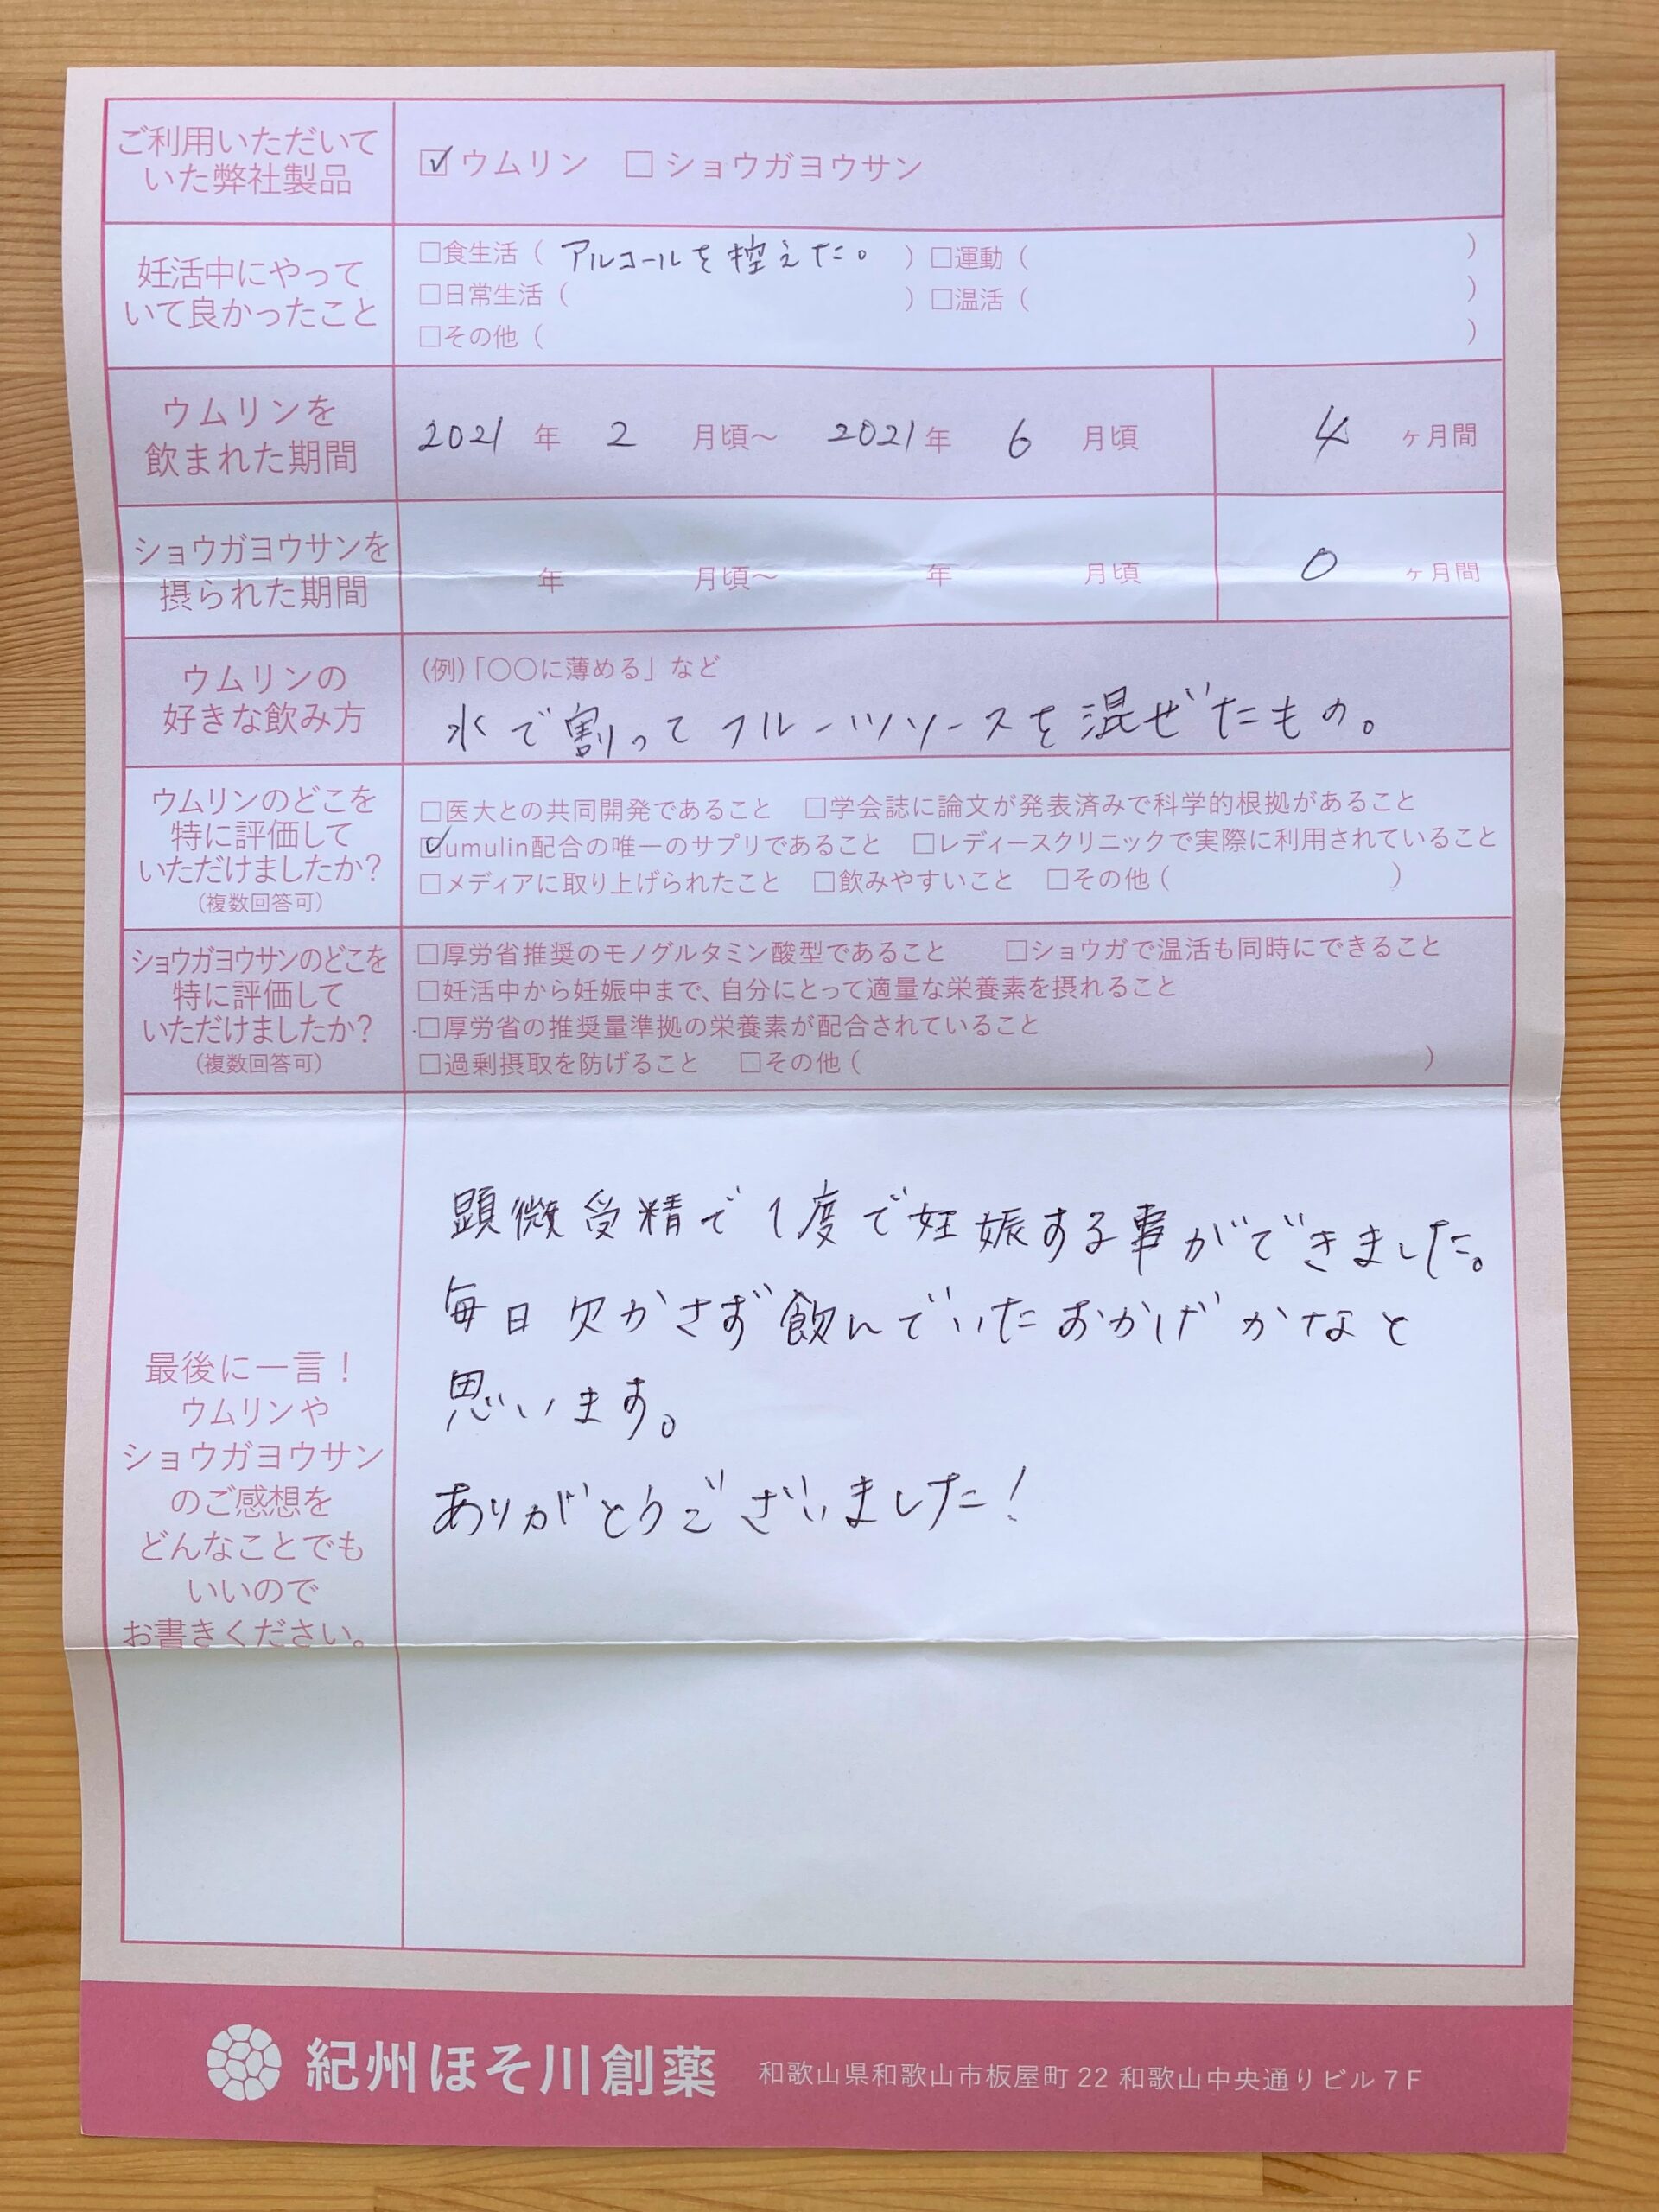 ご利用いただいて
いた弊社製品
☑ウムリン □ショウガヨウサン
妊活中にやって
いて良かったこと
□食生活（ アルコールを控えた。 ）□運動（ ）
□日常生活（ ）□温活（ ）
□その他（ ）
ウムリンを
飲まれた期間
2021 年 2 月頃～ 2021 年 6 月頃 4 ヶ月間
ショウガヨウサンを
摂られた期間
年 月頃～ 年 月頃 0 ヶ月間
ウムリンの
好きな飲み方
(例)「〇〇に薄める」など
水で割ってフルーツソースを混ぜたもの。
ウムリンのどこを
特に評価して
いただけましたか?
(複数回答可)
□医大との共同開発であること □学会誌に論文が発表済みで科学的根拠があること
☑umulin配合の唯一のサプリであること □レディースクリニックで実際に利用されていること
□メディアに取り上げられたこと □飲みやすいこと □その他（ ）
ショウガヨウサンのどこを
特に評価して
いただけましたか?
(複数回答可)
□厚労省推奨のモノグルタミン酸型であること □ショウガで温活も同時にできること
□妊活中から妊娠中まで、自分にとって適量な栄養素を摂れること
□厚労省の推奨量準拠の栄養素が配合されていること
□過剰摂取を防げること □その他（ ）
最後に一言！
ウムリンや
ショウガヨウサン
のご感想を
どんなことでも
いいので
お書きください。
顕微受精で1度で妊娠する事ができました。
毎日欠かさず飲んでいたおかげかなと
思います。
ありがとうございました！
紀州ほそ川創薬 和歌山県和歌山市板屋町 22 和歌山中央通りビル 7 F